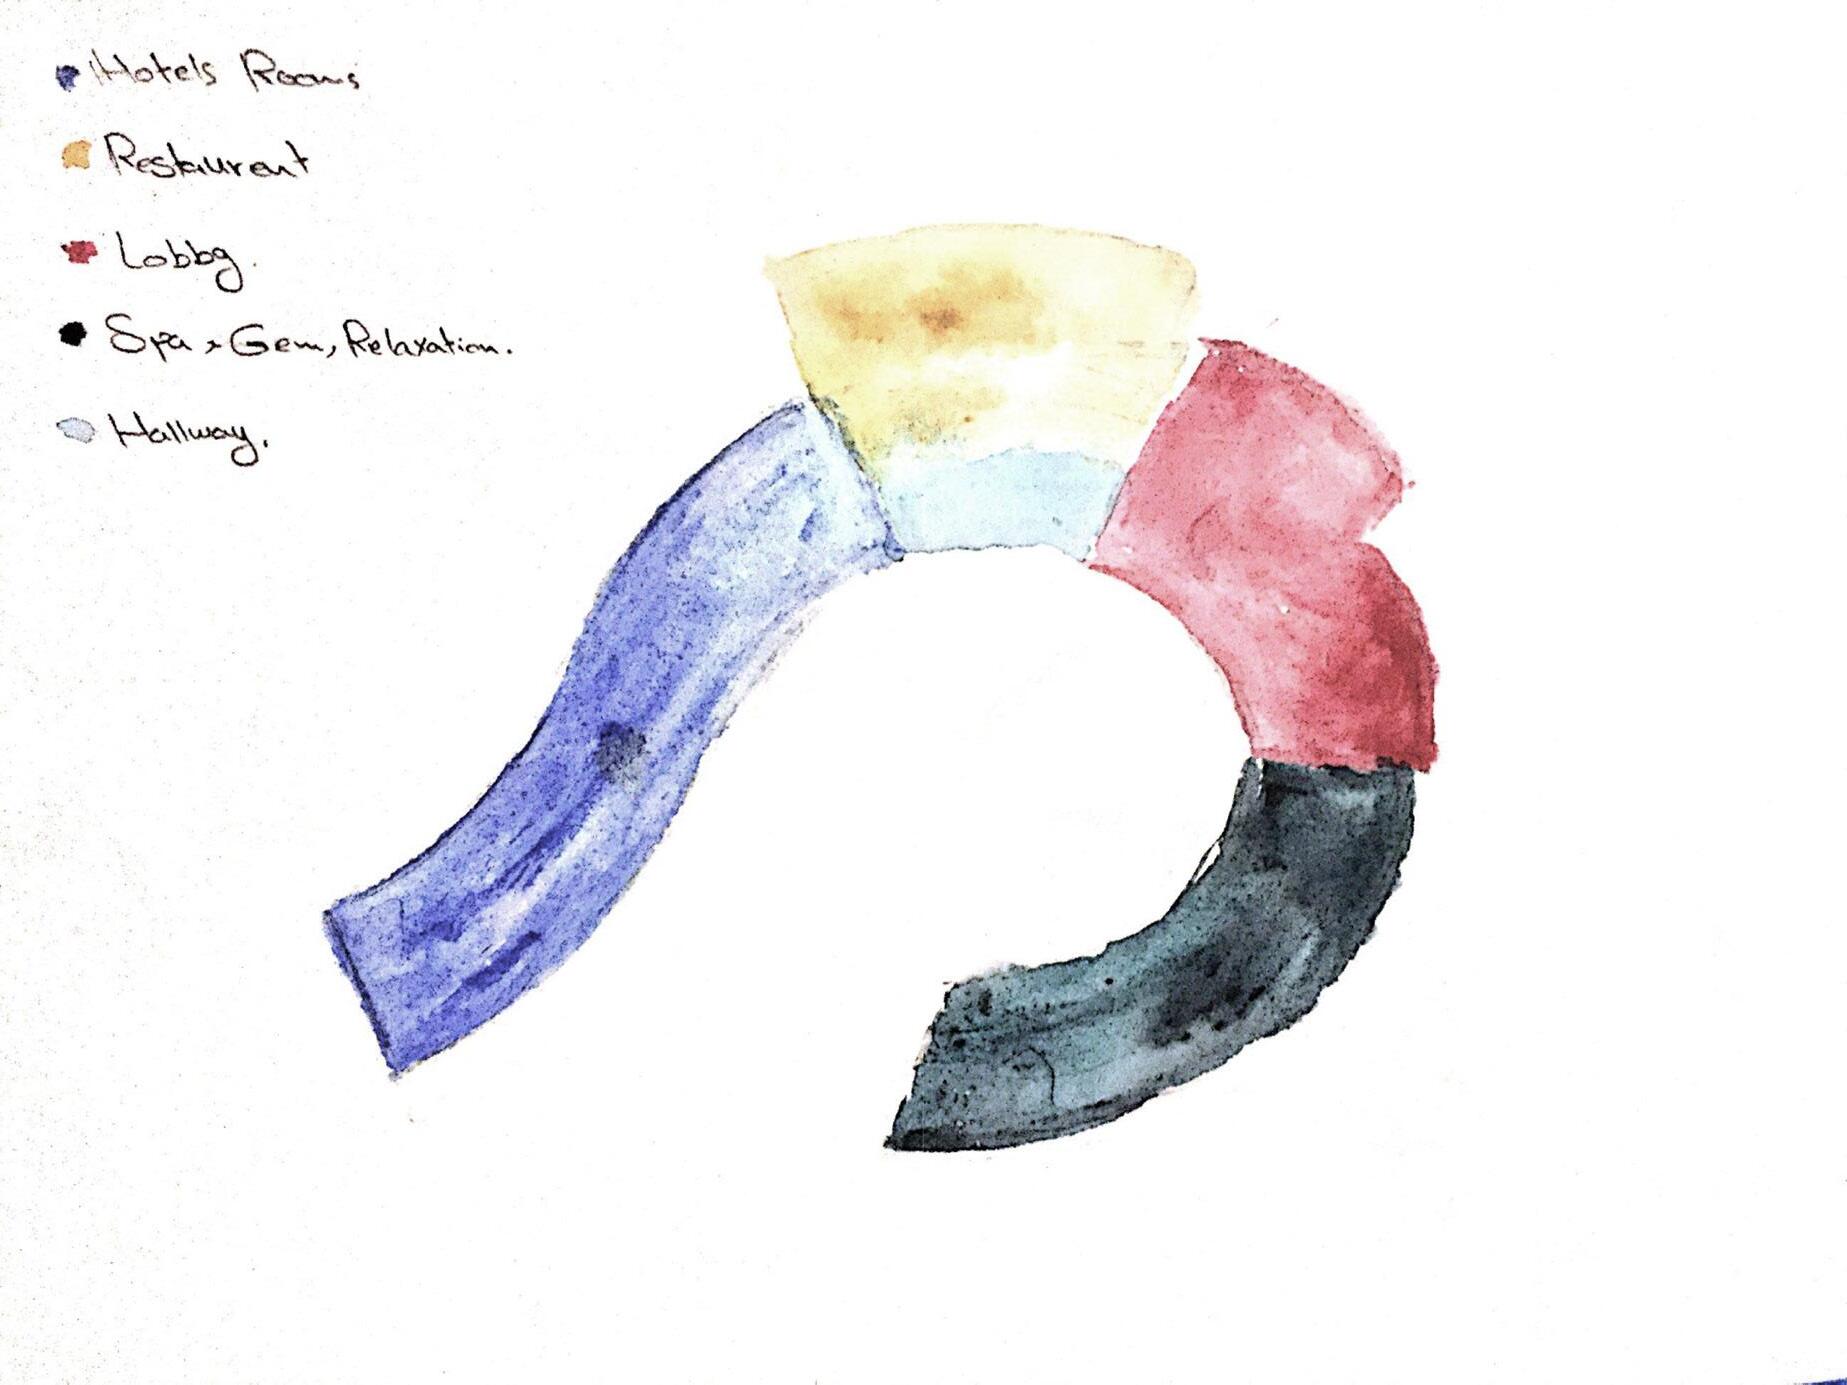 Hotels Rooms
Restaurent
Lobby.
Spa, Gem, Relaxation.
Hallway.